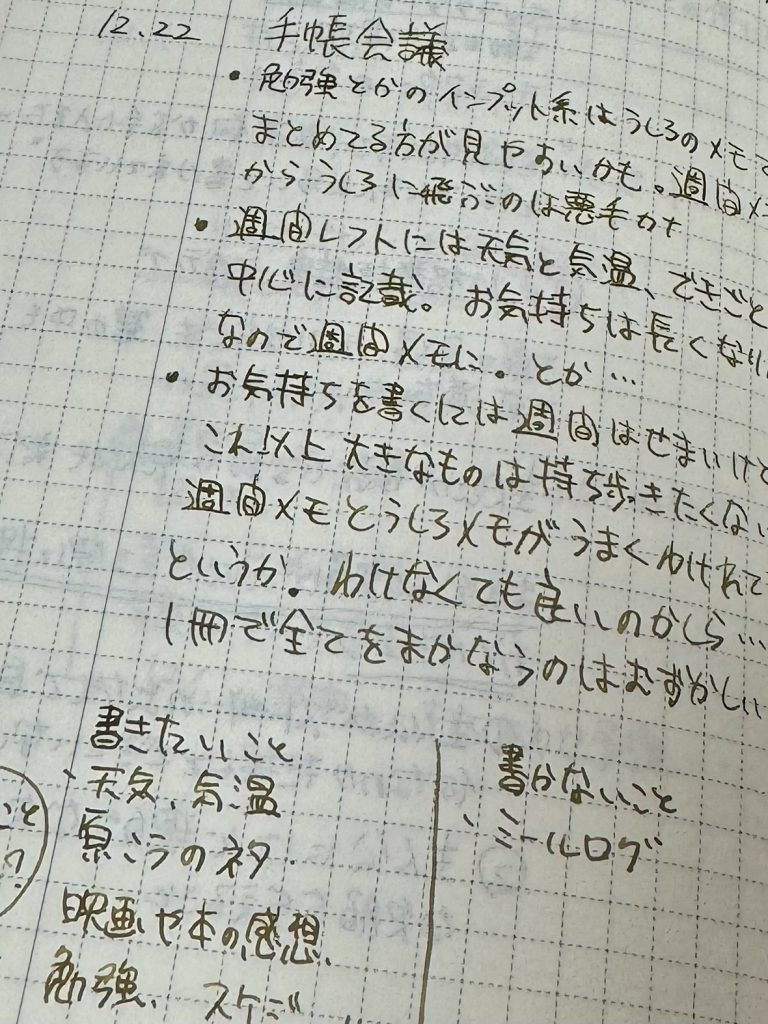 12.22 手帳会議
・勉強とかのインプット系はうしろのメモで
まとめてる方が見やすいかも。週間メモ
からうしろに飛ぶのは悪手かも
・週間レフトには天気と気温、できごと
中心に記載。お気持ちは長くなり
なので週間メモに。とか…
・お気持ちを書くには週間はせまいけど
これ以上大きなものは持ち歩きたくない
週間メモとうしろメモがうまくわけれて
というか。わけなくても良いのかしら…
1冊で全てをまかなうのはむずかしい
書きたいこと
、天気、気温
原こうのネタ
映画や本の感想、
勉強、スケジ
書かないこと
、ミールログ
こと
?